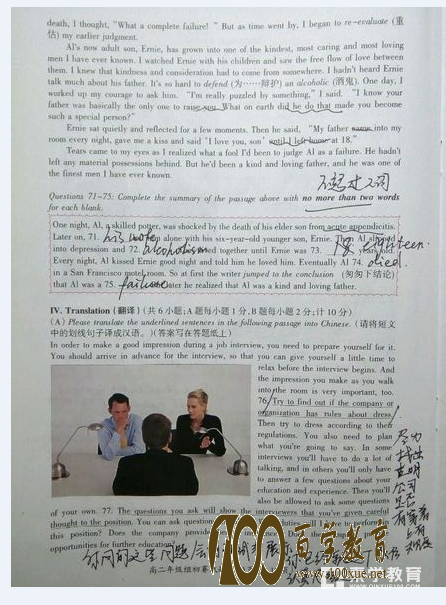 death, I thought, "What a complete failure! " But as time went by, I began to re-evaluate (重
估) my earlier judgment.
Al's now adult son, Ernie, has grown into one of the kindest, most caring and most loving
men I have ever known. I watched Ernie with his children and saw the free flow of love between
them. I knew that kindness and consideration had to come from somewhere. I hadn't heard Ernie
talk much about his father. It's so hard to defend (为……辩护) an alcoholic (酒鬼). One day, I
worked up my courage to ask him. "I'm really puzzled by something," I said. "I know your
father was basically the only one to raise you. What on earth did he do that made you become
such a special person?"
Ernie sat quietly and reflected for a few moments. Then he said, "My father came into my
room every night, gave me a kiss and said 'I love you, son' until I left home at 18."
Tears came to my eyes as I realized what a fool I'd been to judge Al as a failure. He hadn't
left any material possessions behind. But he'd been a kind and loving father, and he was one of
the finest men I have ever known.
不超过两词
Questions 71-75: Complete the summary of the passage above with no more than two words
for each blank.
One night, Al, a skilled potter, was shocked by the death of his elder son from acute appendicitis.
Later on, 71. his wife him alone with his six-year-old younger son, Ernie. Al slipped
into depression and 72. alcoholism together until Ernie was 73. 18 eighteen years old.
Every night, Al kissed Ernie good night and told him he loved him. Eventually Al 74. died
in a San Francisco motel room. So at first the writer jumped to the conclusion (匆匆下结论)
that Al was a 75. failure later he realized that Al was a kind and loving father.
IV. Translation (翻译) (共 6 小题;A 题每小题 1 分,B 题每小题 2 分;计 10 分)
(A) Please translate the underlined sentences in the following passage into Chinese. (请将短文
中的划线句子译成汉语。)(答案写在答题纸上)
In order to make a good impression during a job interview, you need to prepare yourself for it.
You should arrive in advance for the interview, so that you can give yourself a little time to
relax before the interview begins. And
the impression you make as you walk
into the room is very important, too.
76. Try to find out if the company or
organization has rules about dress.
Then try to dress according to their
regulations. You also need to plan
what you're going to say. In some
interviews you'll have to do a lot of
talking, and in others you'll only have
to answer a few questions about your
education and experience. Then you'll
also be allowed to ask some questions
of your own. 77. The questions you ask will show the interviewers that you've given careful
thought to the position. You can ask questions
this position? Does the company provide
opportunities for further education
尽力
找出
查明
公司
是否
有着
你问的这些问题会
高二年级组初赛
100 百学教育
www.100xue.net